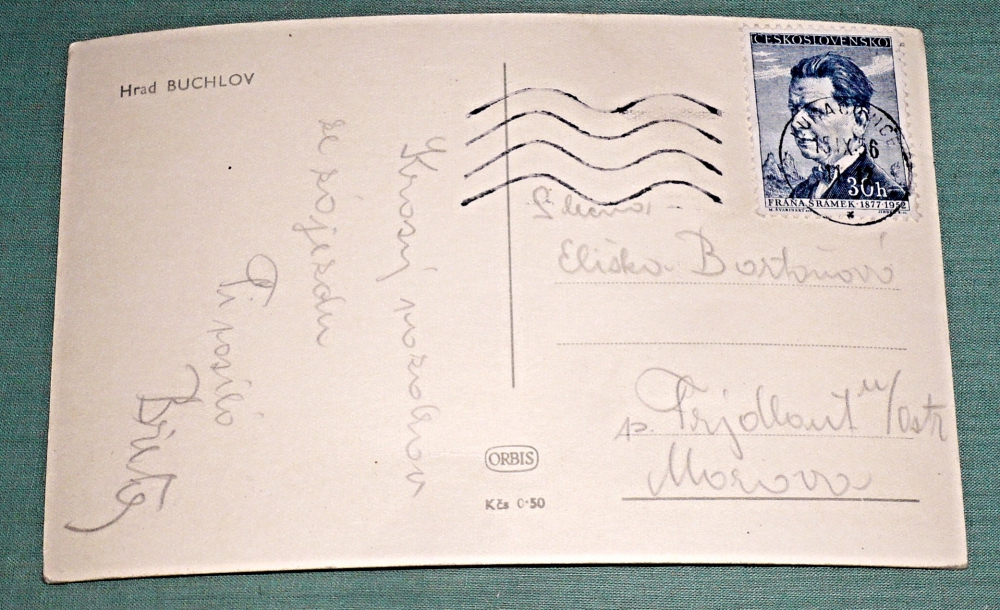 Hrad BUCHLOV
Krásný pozdrav
ze zájezdu
Ti posílá
ČESKOSLOVENSKO
15.IX.56
30h
FRÁŇA ŠRÁMEK · 1877-1952
Slečna
Eliška Bartoňová
p. Frýdlant n/Ostr
Morava
ORBIS
Kčs 0·50